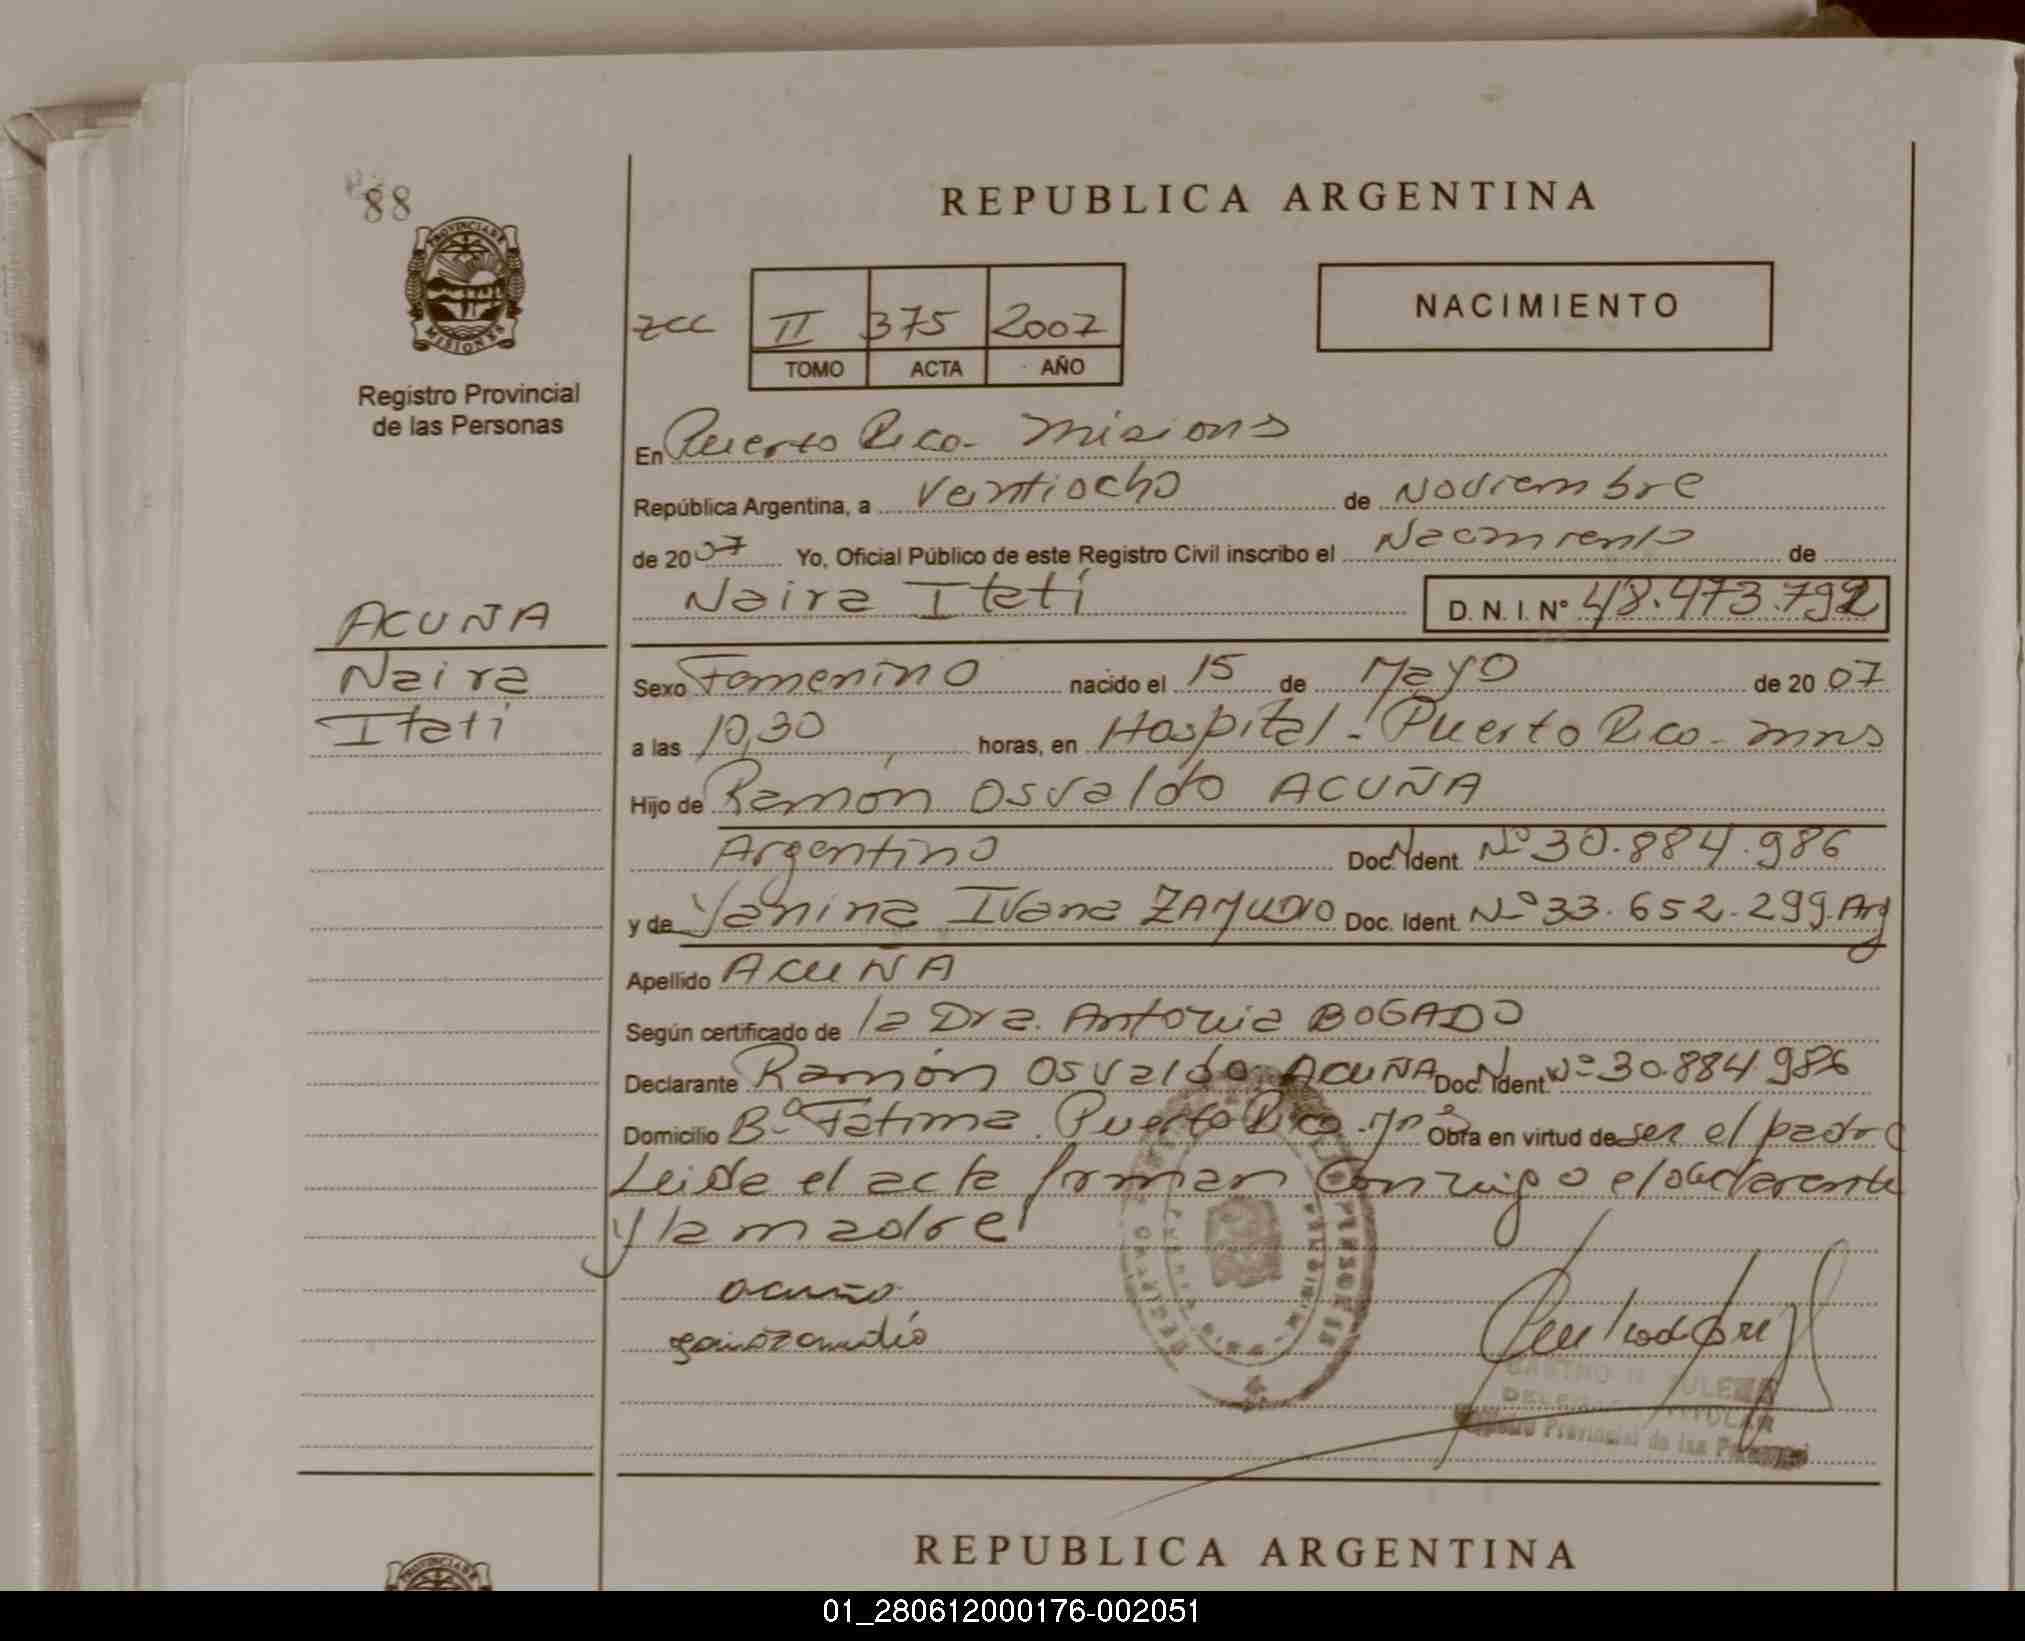 88
PROVINCIA DE
MISIONES
Registro Provincial
de las Personas
REPUBLICA ARGENTINA
NACIMIENTO
II 375 2007
TOMO ACTA AÑO
En Puerto Rico - Misions
República Argentina, a Veintiocho de Noviembre
de 2007 Yo, Oficial Público de este Registro Civil inscribo el Nacimiento de
Naira Itatí D. N. I. Nº 48.473.792
ACUÑA
Naira
Itatí
Sexo Femenino nacido el 15 de Mayo de 2007
a las 10,30 horas, en Hospital - Puerto Rico - Mns
Hijo de Ramón Osvaldo ACUÑA
Argentino Doc. Ident. Nº 30.884.986
y de Yanina Ivana ZAMUDIO Doc. Ident. Nº 33.652.299. Arg
Apellido ACUÑA
Según certificado de la Dra. Antonia BOGADO
Declarante Ramón Osvaldo ACUÑA Doc. Ident. Nº 30.884.986
Domicilio Bº Fátima. Puerto Rico. Mns Obra en virtud de ser el padre
Leida el acta firman conmigo el declarante
y la madre
acuña
REGISTRO PROVINCIAL
Registro Provincial de las Personas
REPUBLICA ARGENTINA
01_280612000176-002051